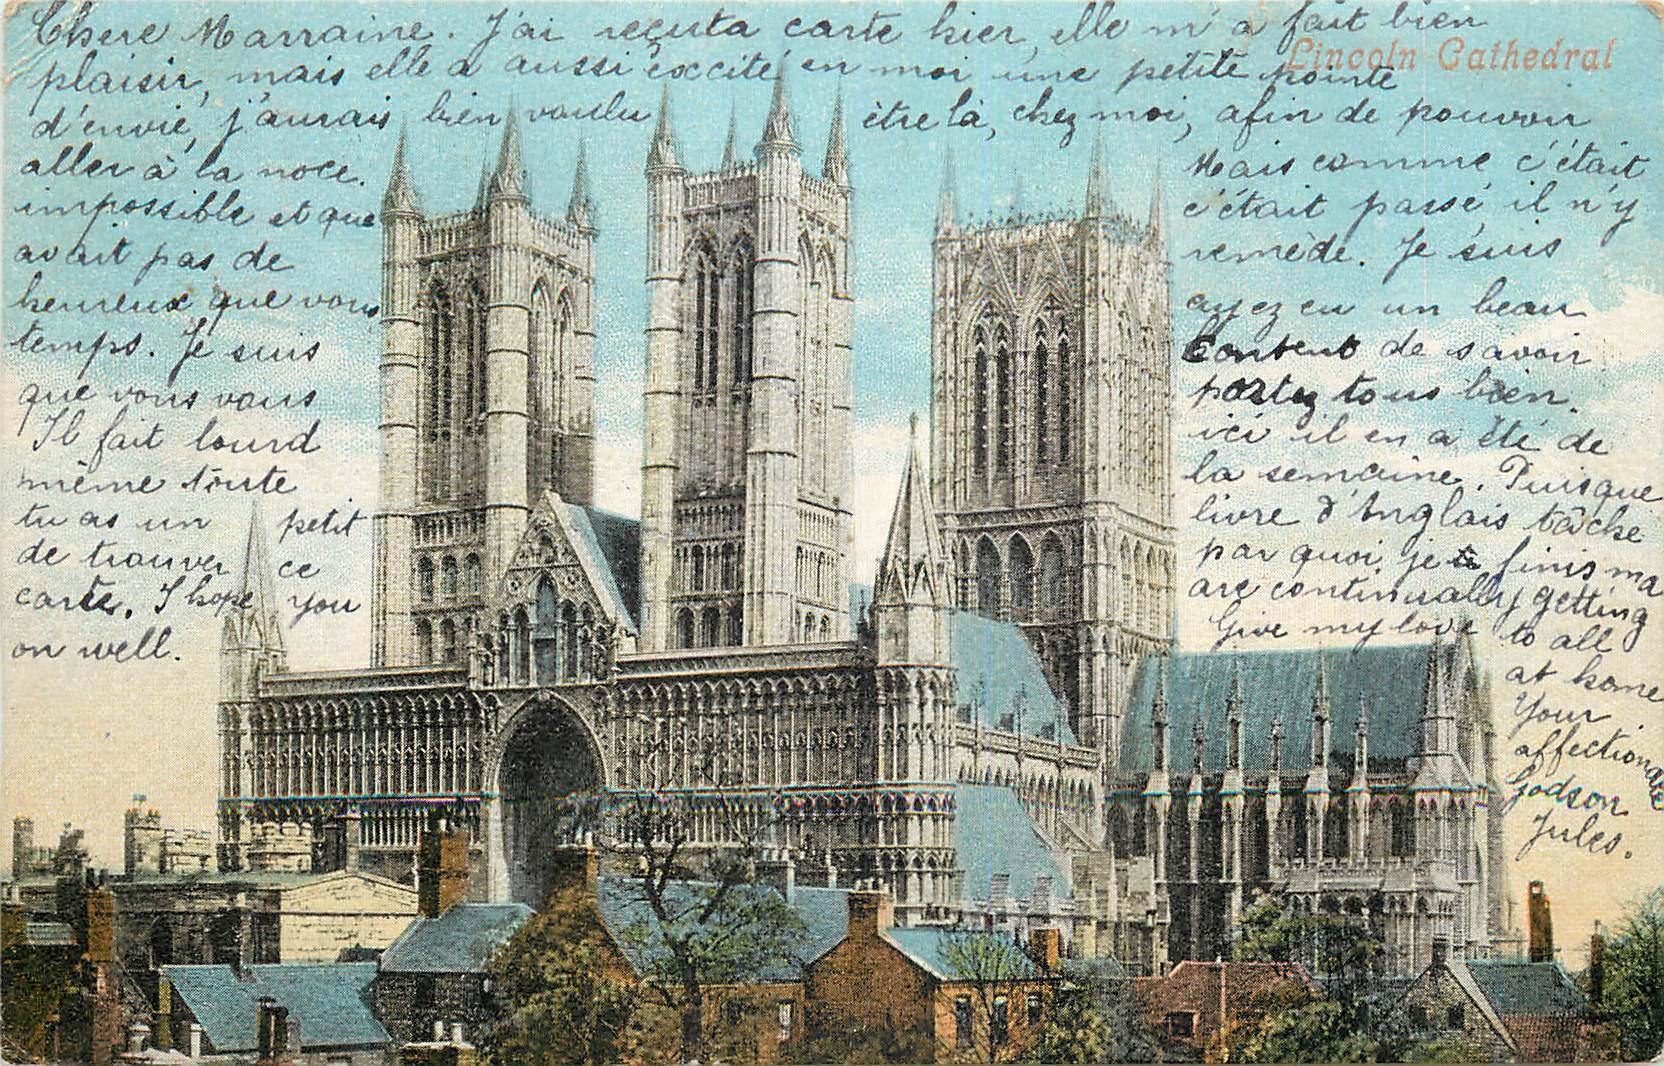 Chere Marraine. J'ai reçu ta carte hier, elle m'a fait bien
Lincoln Cathedral
plaisir, mais elle a aussi excité en moi une petite pointe
d'envie, j'aurais bien voulu être là, chez moi, afin de pouvoir
aller à la noce. Mais comme c'était
impossible et que c'était passé il n'y
avait pas de remède. Je suis
heureux que vous ayez eu un beau
temps. Je suis Content de savoir
que vous vous portez tous bien.
Il fait lourd ici il en a été de
même toute la semaine. Puisque
tu as un petit livre d'Anglais tâche
de trouver ce par quoi je finis ma
carte. I hope you are continually getting
on well. Give my love to all
at home
Your
affectionate
Godson
Jules.